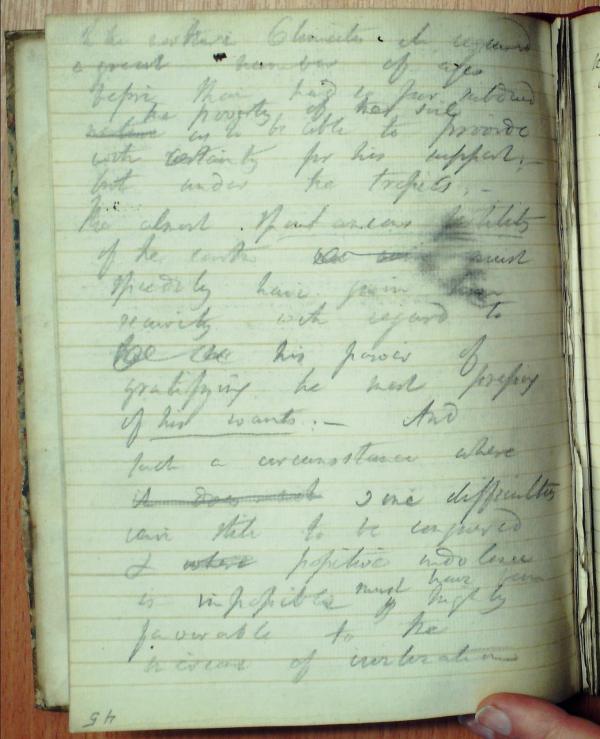 In the northern Climates it required
a great number of ages
before Man had so far subdued
the poverty of her soil
nature as to be able to provide
with certainty for his support; -
but under the tropics; -
the almost spontaneous fertility
of the earth must
speedily have given him
security with regard to
his power of
gratifying the most pressing
of his wants. - And
such a circumstance where
it does not some difficulties
were still to be conquered
& where positive indolence
is impossible must have been highly
favourable to the
of civilization
45